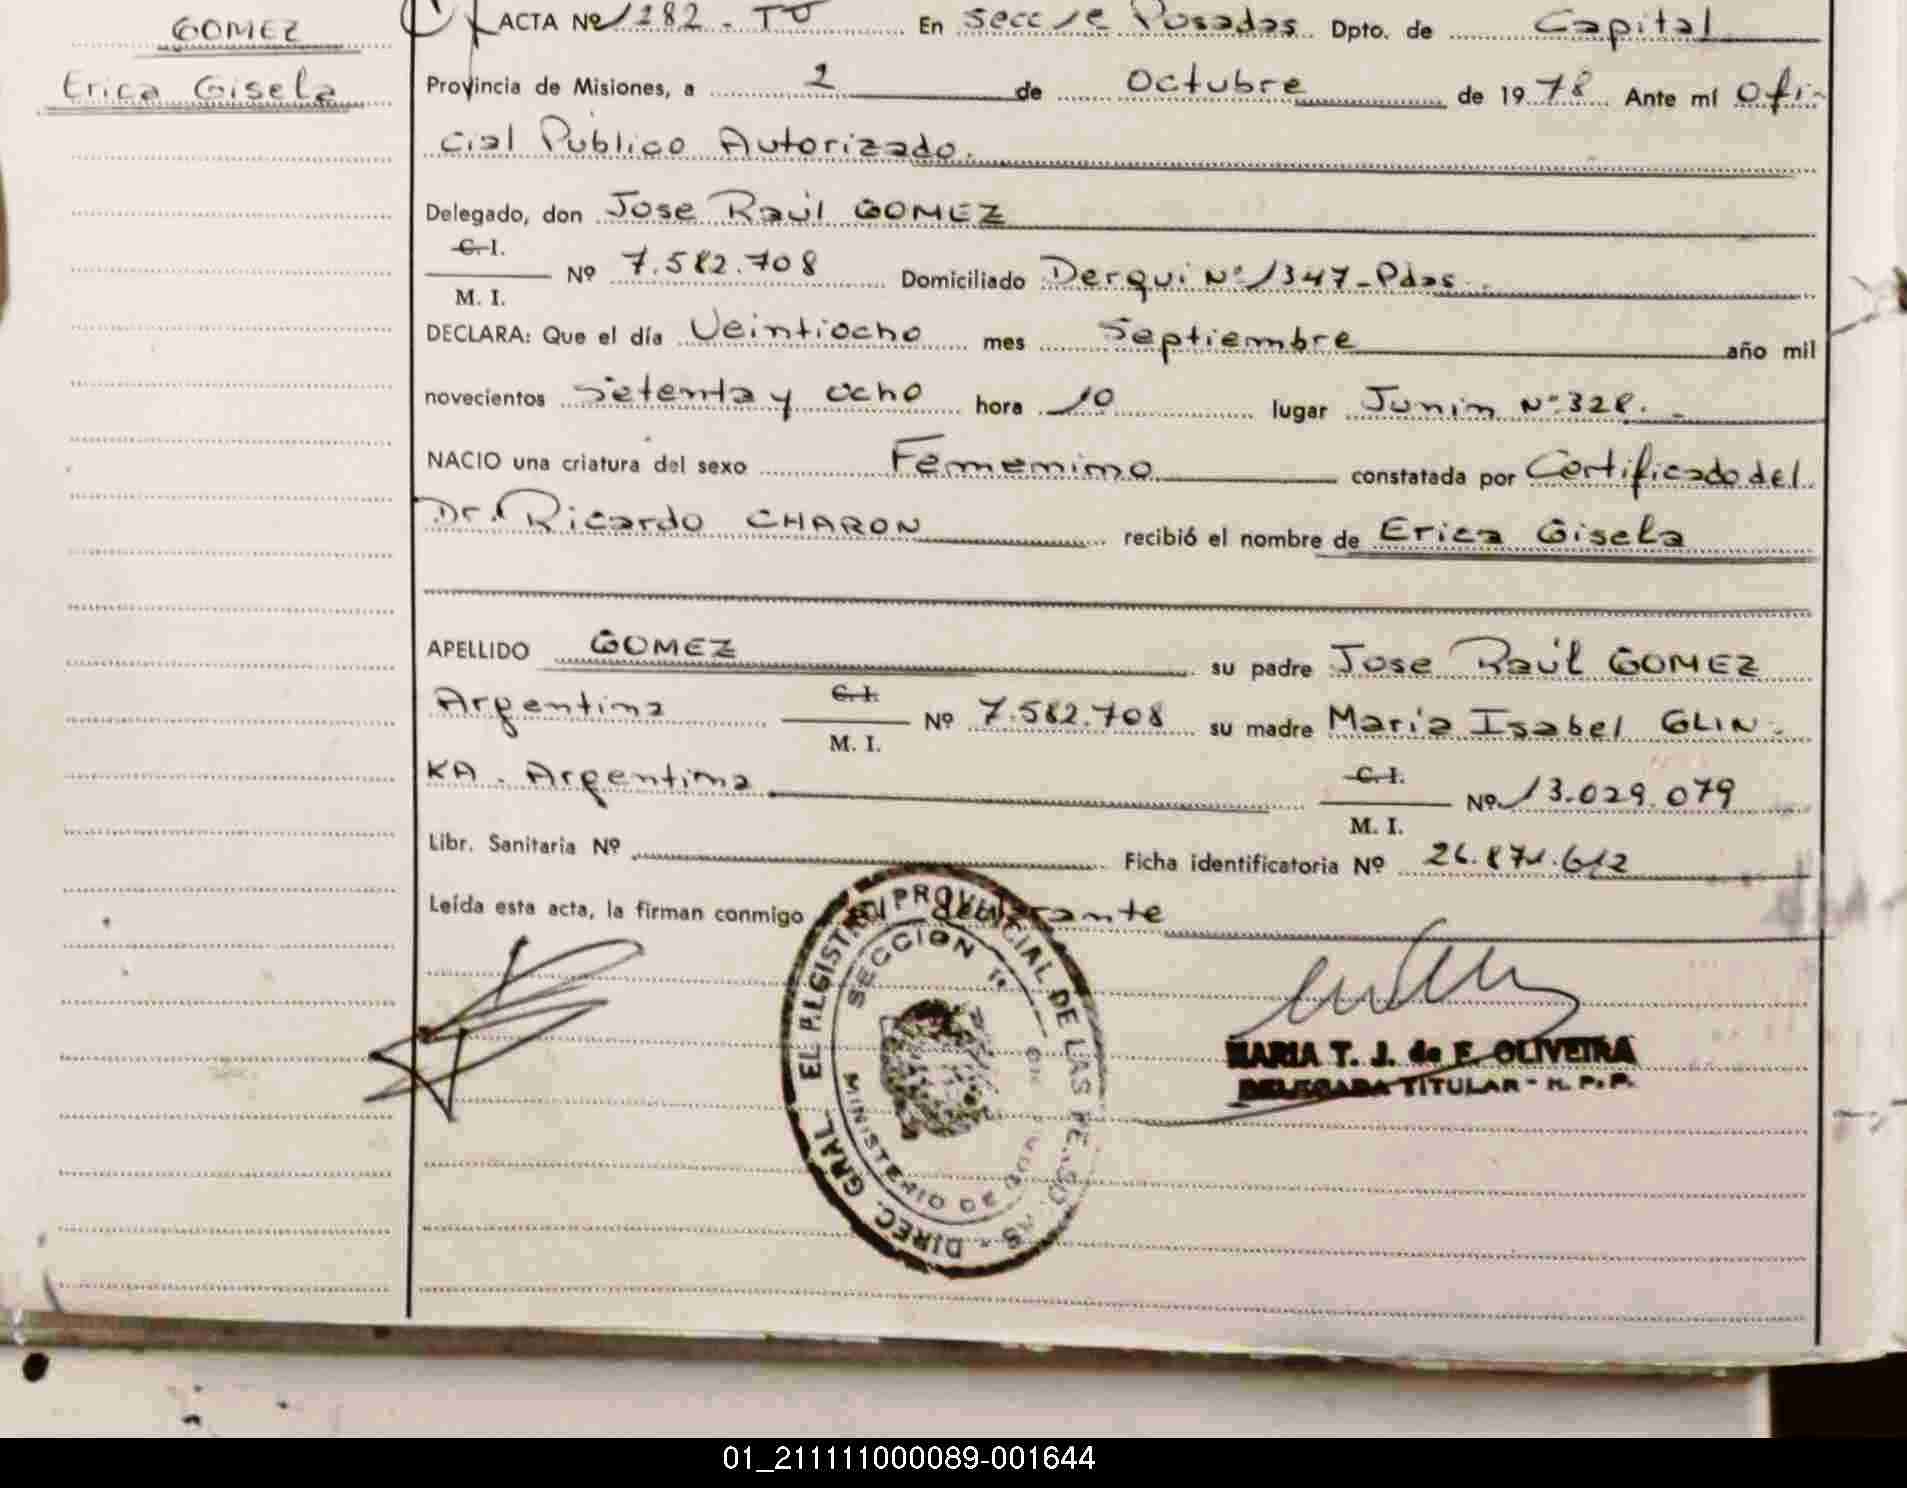 GOMEZ
Erica Gisela
ACTA Nº 1282 - Tº En Secc 1e Posadas Dpto. de Capital
Provincia de Misiones, a 2 de Octubre de 1978 Ante mí Ofi-
cial Público Autorizado.
Delegado, don Jose Raúl GOMEZ
C. I.
Nº 7.582.708 Domiciliado Derqui Nº 1347 - Pdas.
M. I.
DECLARA: Que el día Veintiocho mes Septiembre año mil
novecientos Setenta y Ocho hora 10 lugar Junin Nº 328. -
NACIO una criatura del sexo Femenino constatada por Certificado del
Dr. Ricardo CHARON recibió el nombre de Erica Gisela
APELLIDO GOMEZ su padre Jose Raúl GOMEZ
Argentina C. I. Nº 7.582.708 su madre Maria Isabel GLIN-
M. I.
KA - Argentina C. I. Nº 13.029.079
M. I.
Libr. Sanitaria Nº Ficha identificatoria Nº 26.871.612
Leída esta acta, la firman conmigo el declarante
DIREC. GRAL. EL REGISTRO PROVINCIAL DE LAS PERSONAS
SECCION 1ª
MINISTERIO DE
MARIA T. J. de F. OLIVEIRA
DELEGADA TITULAR - R. P. P.
01_211111000089-001644